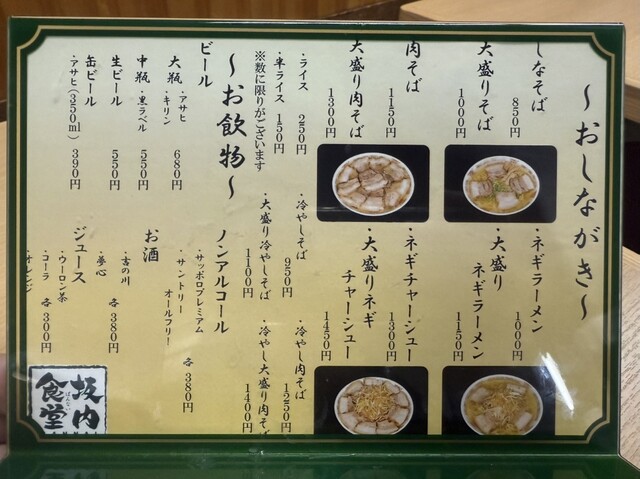 ～おしながき～
しなそば
850円
大盛りそば
1000円
肉そば
1150円
大盛り肉そば
1300円
・ネギラーメン
1000円
・大盛り
ネギラーメン
1150円
・ネギチャーシュー
1300円
・大盛りネギ
チャーシュー
1450円
・ライス
250円
・半ライス
150円
※数に限りがございます
・冷やしそば
950円
・大盛り冷やしそば
1100円
・冷やし肉そば
1250円
・冷やし大盛り肉そば
1400円
～お飲物～
ビール
大瓶・アサヒ
・キリン
680円
中瓶・黒ラベル
550円
生ビール
550円
缶ビール
・アサヒ(350ml)
390円
ノンアルコール
・サッポロプレミアム
・サントリー
オールフリー
各380円
お酒
・吉の川
・夢心
各380円
ジュース
・ウーロン茶
・コーラ
・オレンジ
各300円
坂内
食堂